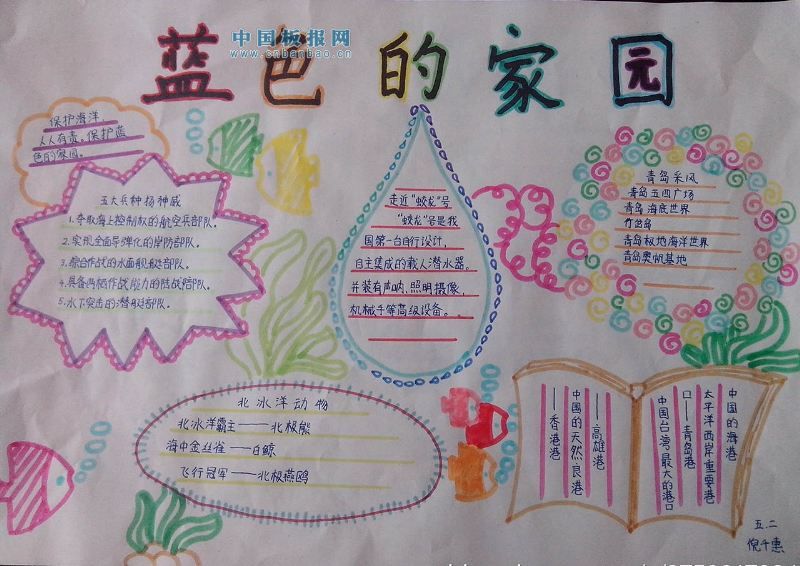 中国板报网
www.cnbanbao.cn
蓝色的家园
保护海洋,
人人有责。保护蓝
色的家园。
五大兵种扬神威
1.夺取海上控制权的航空兵部队。
2.实现全面导弹化的岸防部队。
3.综合作战的水面舰艇部队。
4.具备两栖作战能力的陆战部队。
5.水下突击的潜艇部队。
走近“蛟龙”号
“蛟龙”号是我
国第一台自行设计,
自主集成的载人潜水器。
并装有声呐、照明摄像、
机械手等高级设备。
青岛采风
青岛五四广场
青岛海底世界
竹岔岛
青岛极地海洋世界
青岛奥帆基地
北冰洋动物
北冰洋霸主——北极熊
海中金丝雀——白鲸
飞行冠军——北极燕鸥
中国的海港
太平洋西岸重要港
口——青岛港
中国台湾最大的港口
——高雄港
中国的天然良港
——香港港
五.二
倪千惠